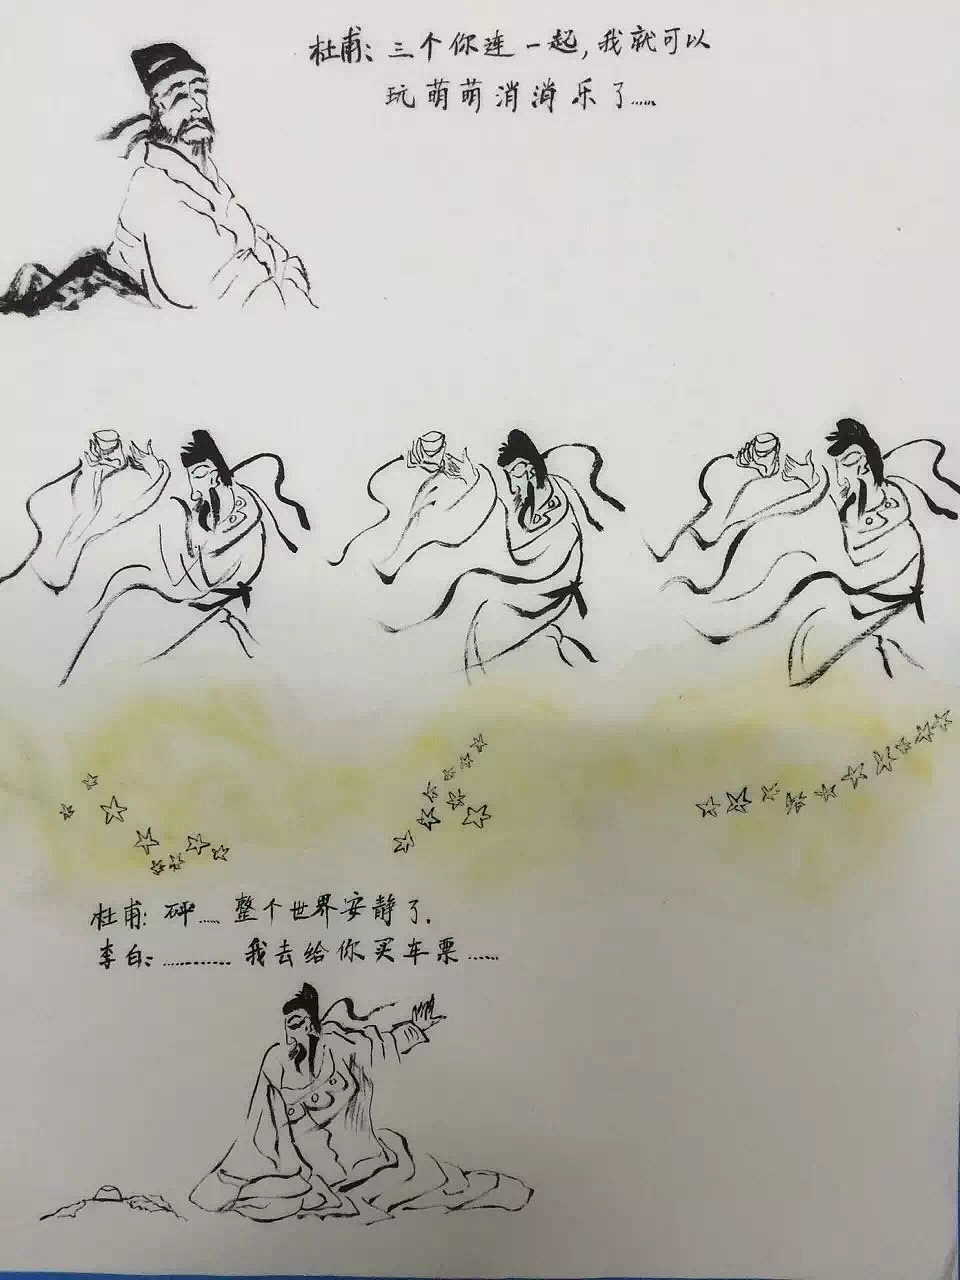 杜甫：三个你连一起，我就可以
玩萌萌消消乐了……
杜甫：砰…… 整个世界安静了．
李白：………… 我去给你买车票……